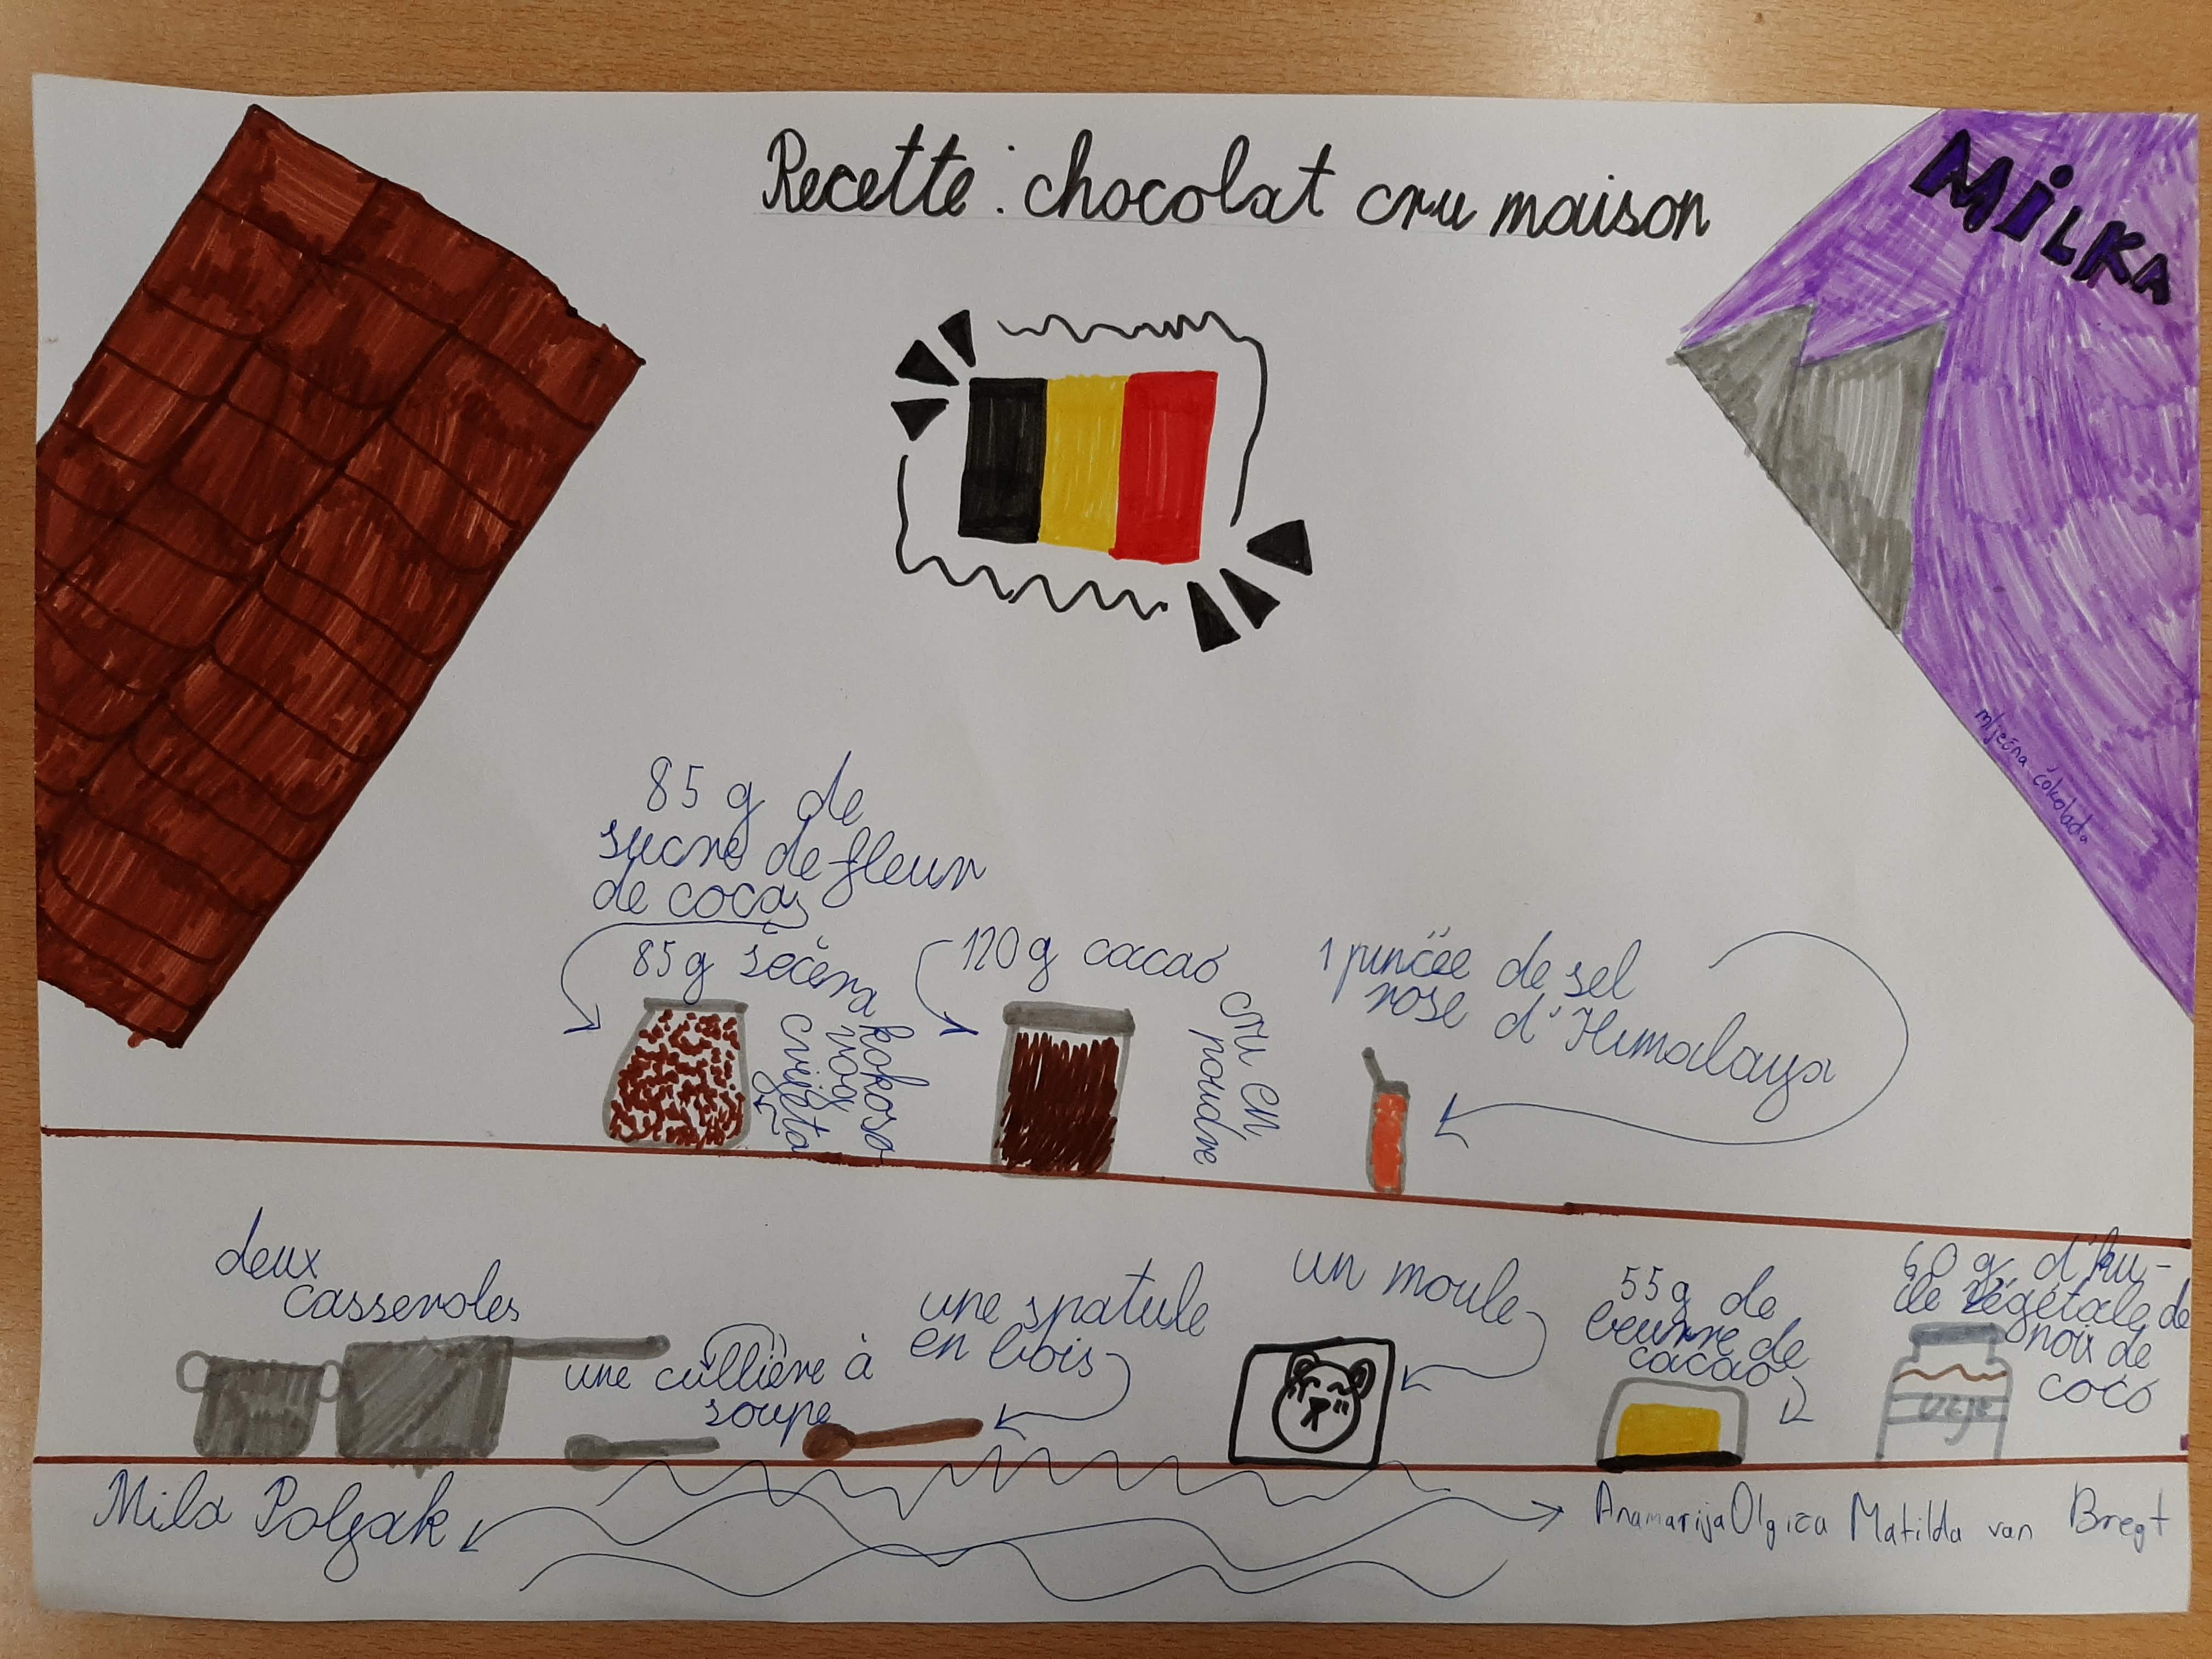 Recette : chocolat cru maison
MiLKA
mlječna čokolada
85 g de
sucre de fleur
de cocos
85 g šećera
kokoso
vog
cvijeta
120 g cacao
cru en
poudre
1 pinčëe de sel
rose d'Himalaya
deux
casseroles
une cullière à
soupe
une spatule
en bois
un moule
55 g de
beurre de
cacao
60 g d'hu-
ile végétale de
noix de
coco
ulje
Mila Poljak
Anamarija Olgica Matilda van Bregt